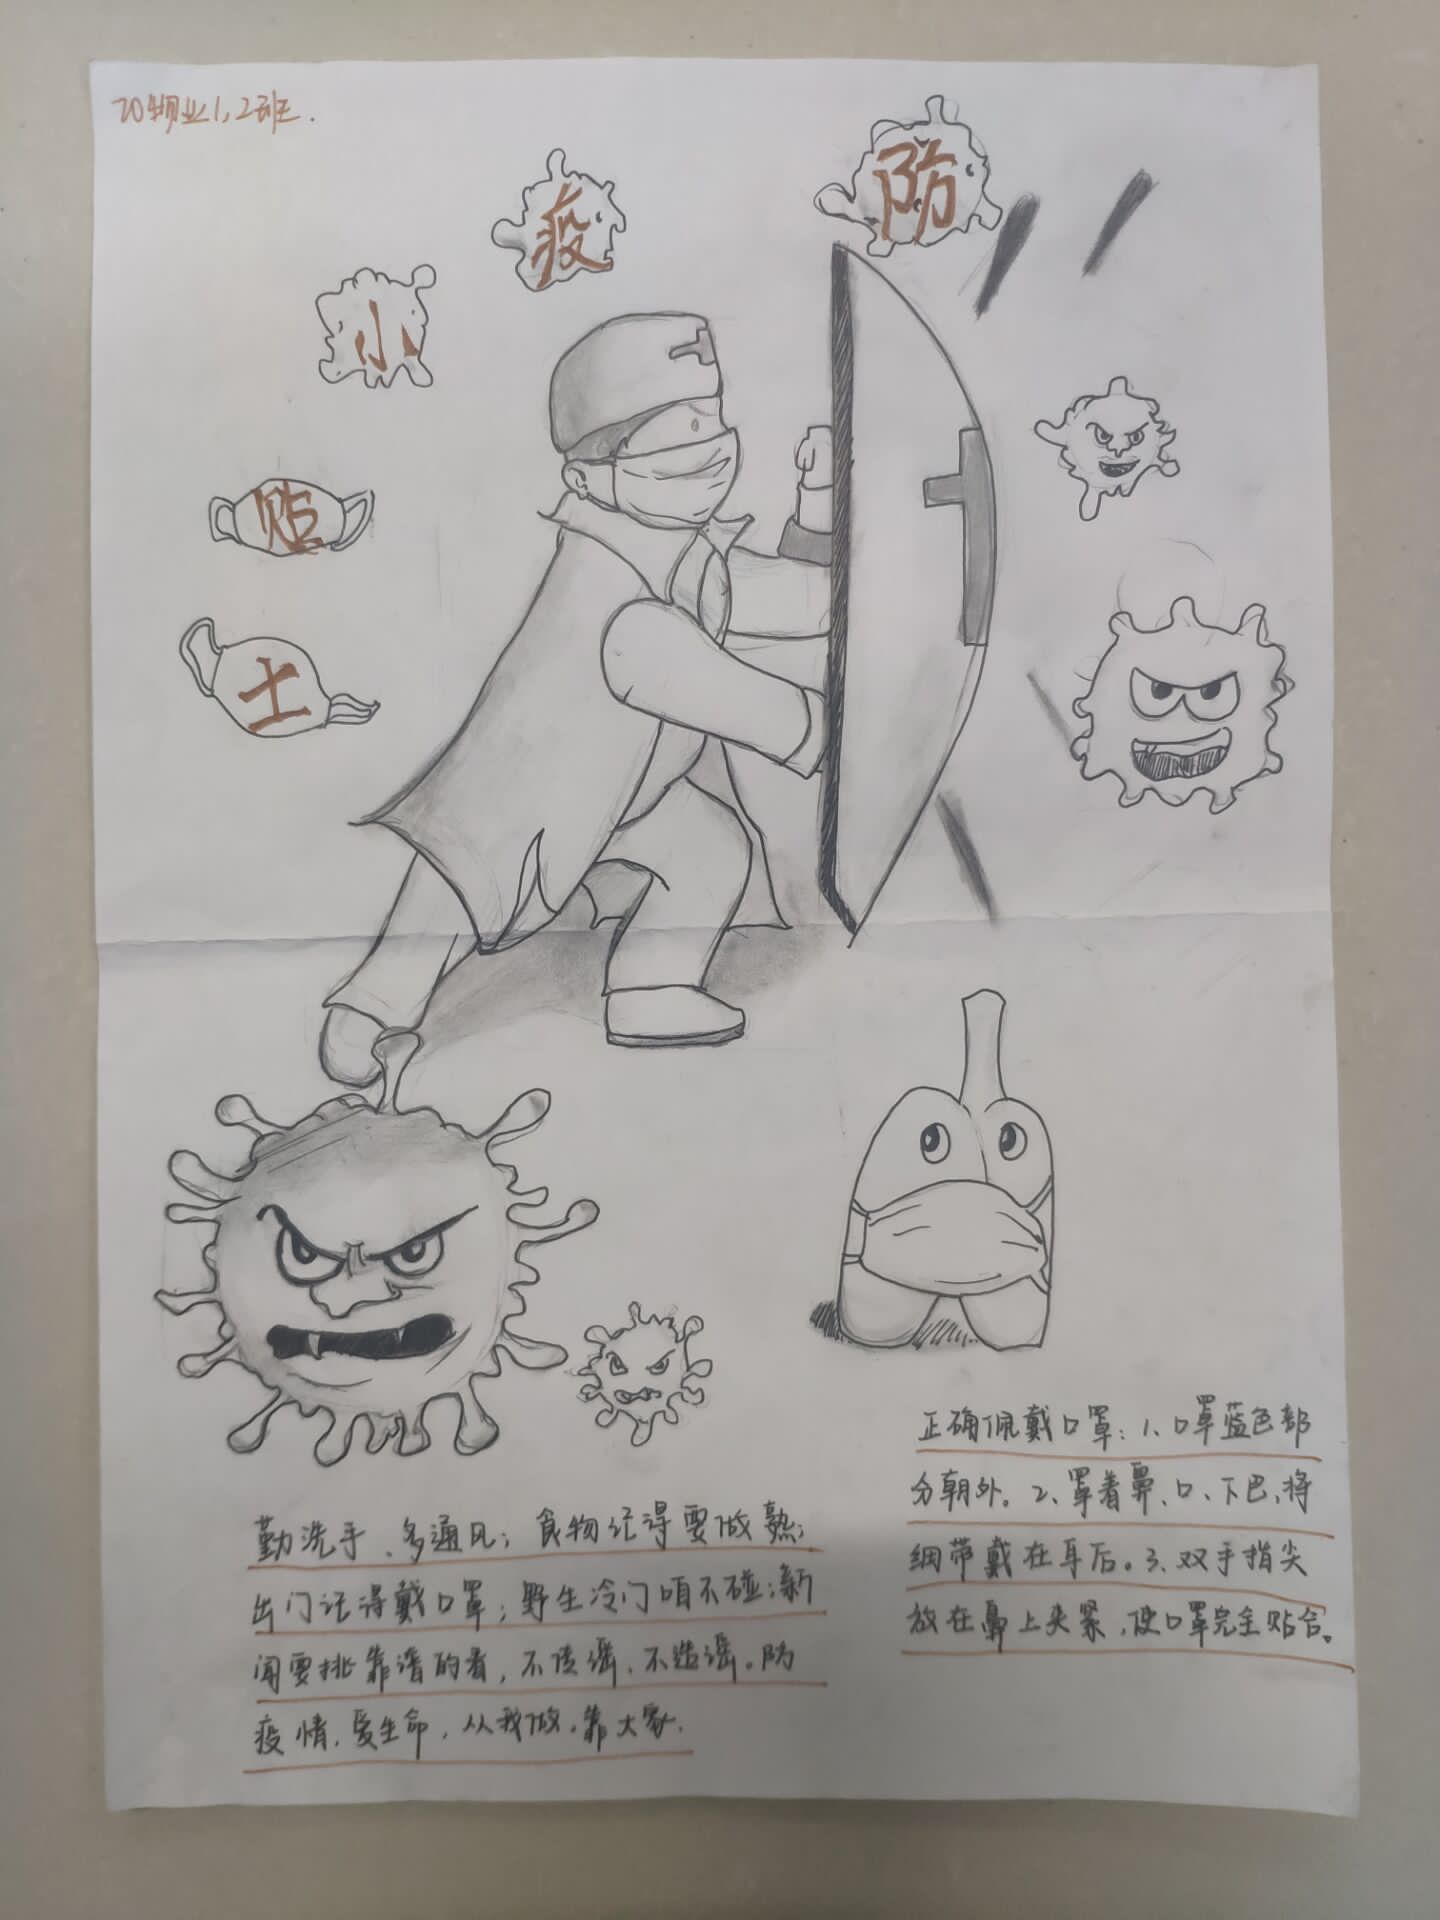 20物业1,2班.
防
疫
小
贴
士
正确佩戴口罩：1、口罩蓝色部
分朝外。2、罩着鼻、口、下巴，将
绸带戴在耳后。3、双手指尖
放在鼻上夹紧，使口罩完全贴合。
勤洗手、多通风；食物记得要做熟；
出门记得戴口罩；野生冷门咱不碰；新
闻要挑靠谱的看，不读谣，不造谣。防
疫情，爱生命，从我做，靠大家.